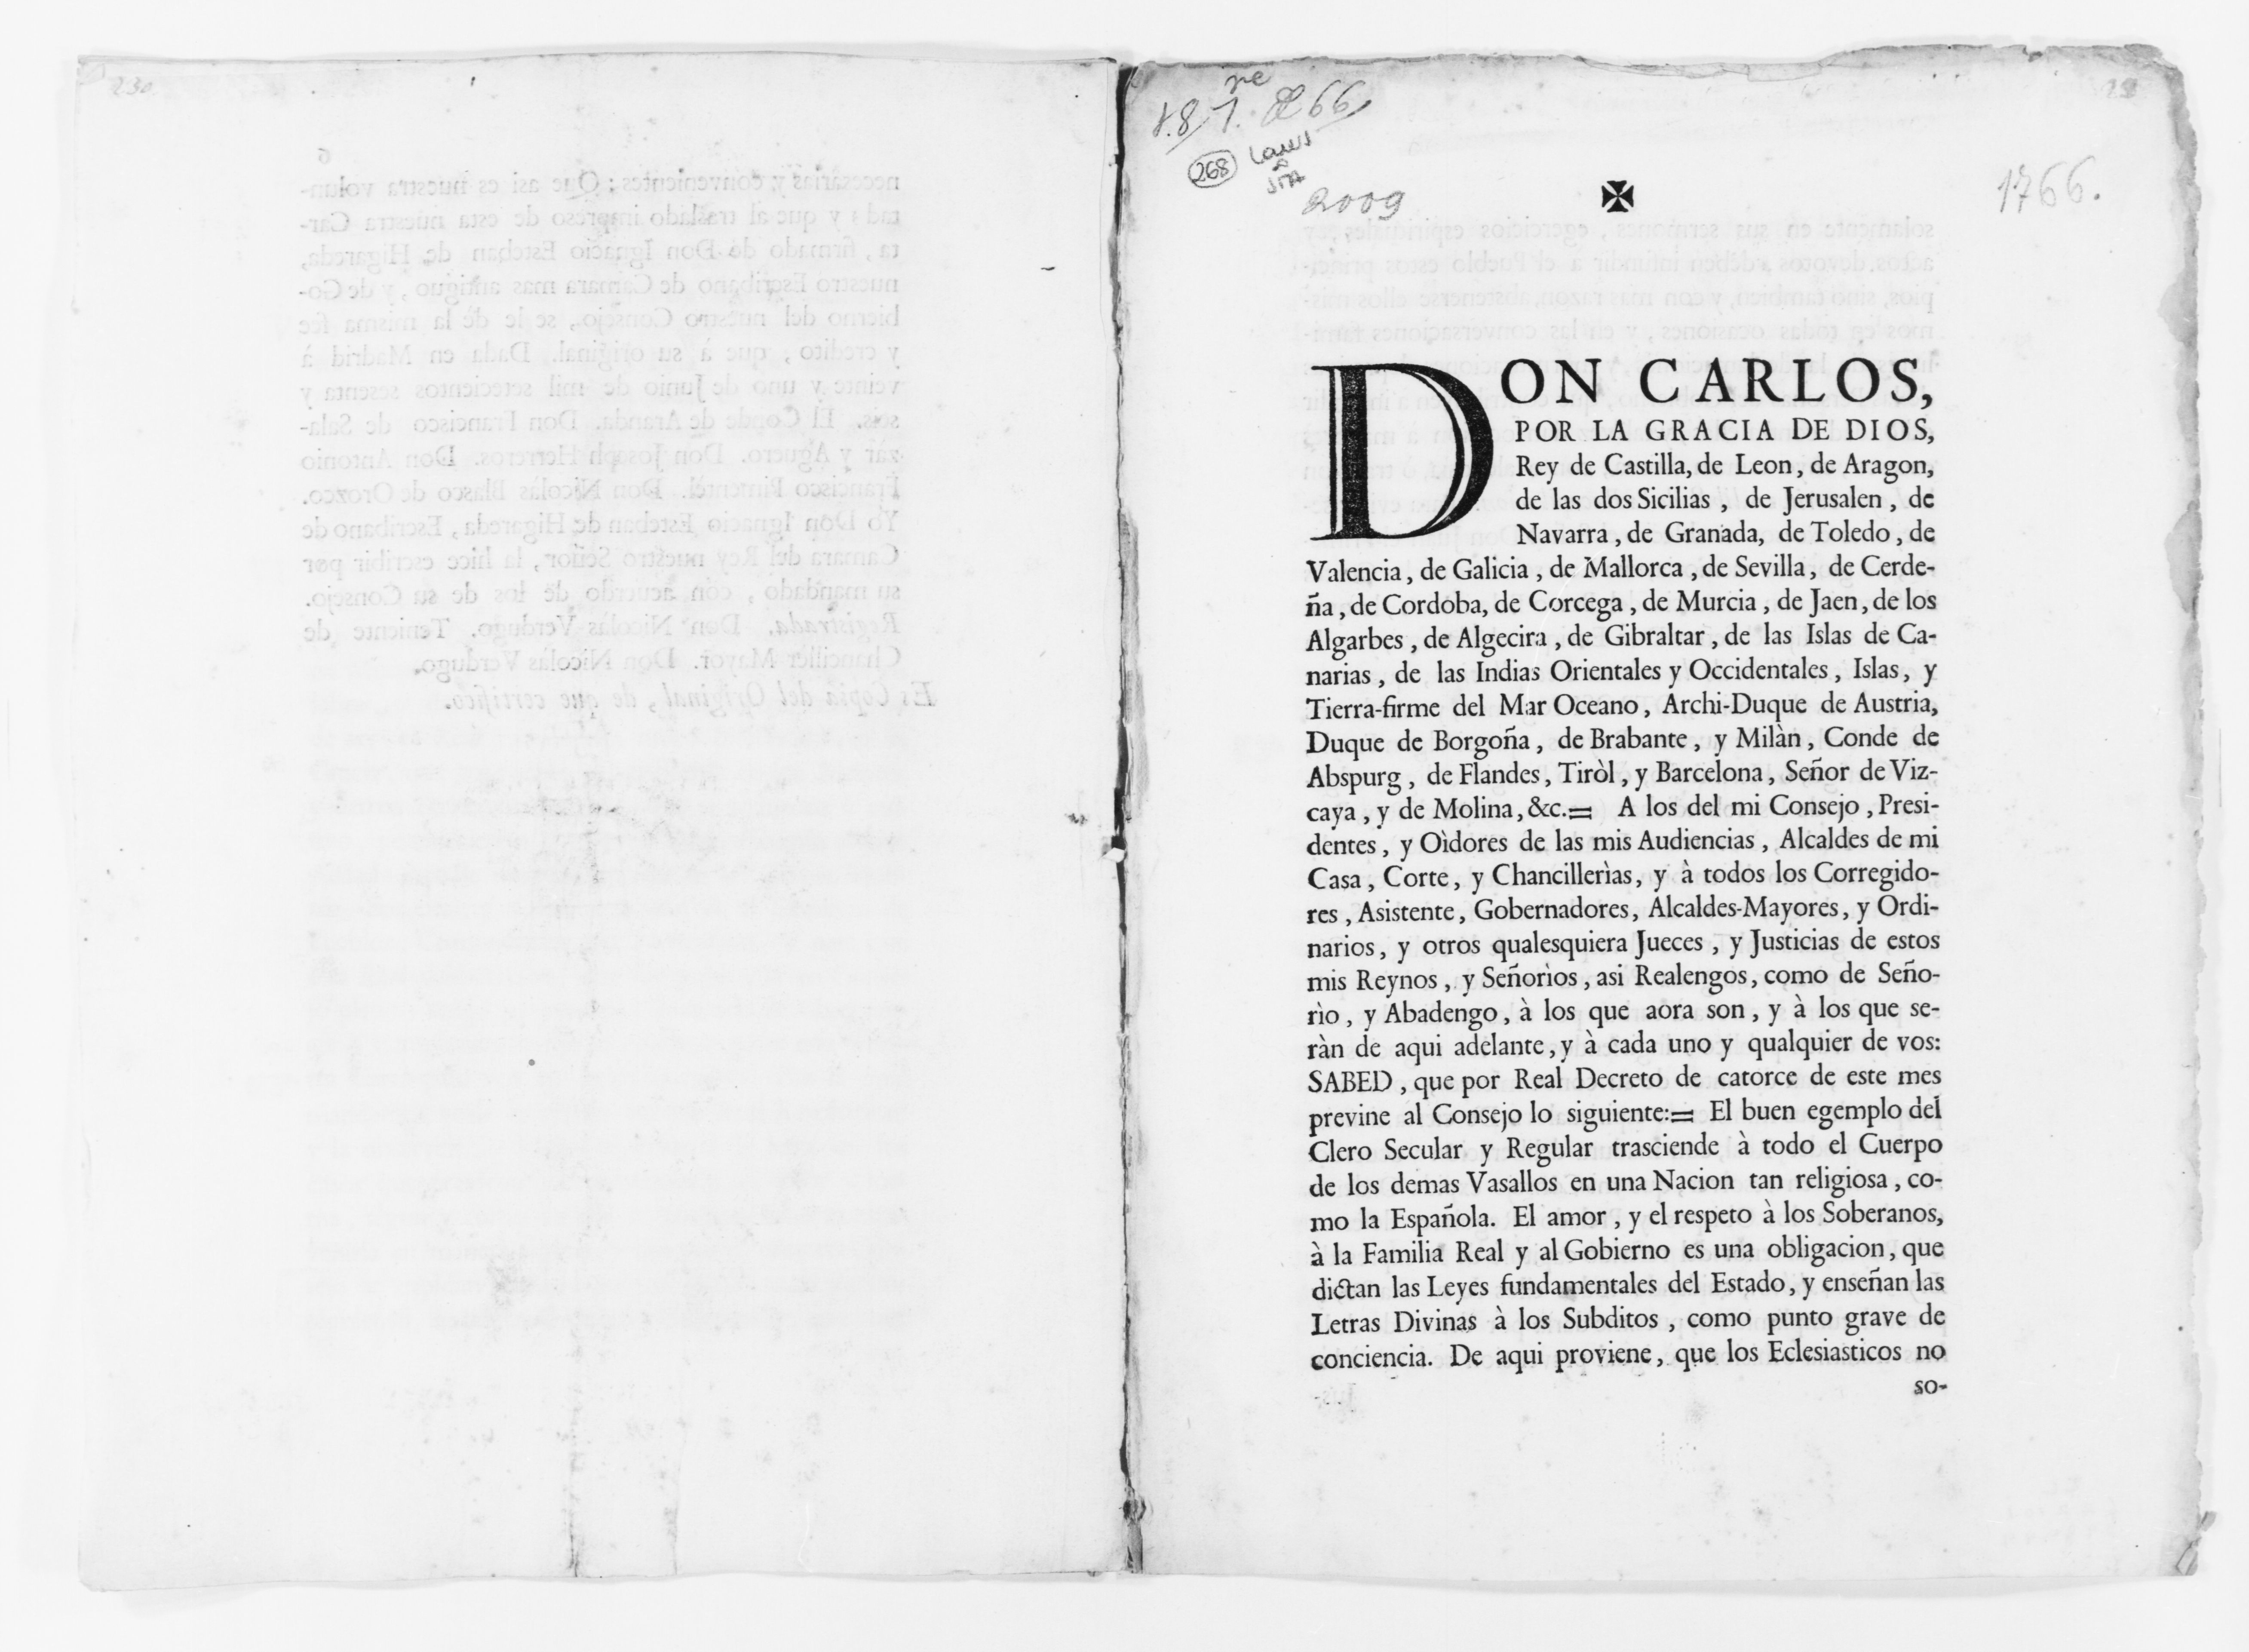 230
6
necesarias y convenientes; Que asi es nuestra volun-
tad; y que al traslado impreso de esta nuestra Car-
ta, firmado de Don Ignacio Esteban de Higareda,
nuestro Escribano de Camara mas antiguo, y de Go-
bierno del nuestro Consejo, se le dè la misma fee
y credito, que à su original. Dada en Madrid à
veinte y uno de Junio de mil setecientos sesenta y
seis. El Conde de Aranda. Don Francisco de Sala-
zár y Aguero. Don Joseph Herreros. Don Antonio
Francisco Pimentèl. Don Nicolàs Blasco de Orozco.
Yo Don Ignacio Esteban de Higareda, Escribano de
Camara del Rey nuestro Señor, la hice escribir por
su mandado, con acuerdo de los de su Consejo.
Registrada. Don Nicolàs Verdugo. Teniente de
Chancillèr Mayor. Don Nicolàs Verdugo.
Es Copia del Original, de que certifico.
268
2009
1766.
DON CARLOS,
POR LA GRACIA DE DIOS,
Rey de Castilla, de Leon, de Aragon,
de las dos Sicilias, de Jerusalen, de
Navarra, de Granada, de Toledo, de
Valencia, de Galicia, de Mallorca, de Sevilla, de Cerde-
ña, de Cordoba, de Corcega, de Murcia, de Jaen, de los
Algarbes, de Algecira, de Gibraltar, de las Islas de Ca-
narias, de las Indias Orientales y Occidentales, Islas, y
Tierra-firme del Mar Oceano, Archi-Duque de Austria,
Duque de Borgoña, de Brabante, y Milàn, Conde de
Abspurg, de Flandes, Tiròl, y Barcelona, Señor de Viz-
caya, y de Molina, &c.= A los del mi Consejo, Presi-
dentes, y Oìdores de las mis Audiencias, Alcaldes de mi
Casa, Corte, y Chancillerìas, y à todos los Corregido-
res, Asistente, Gobernadores, Alcaldes-Mayores, y Ordi-
narios, y otros qualesquiera Jueces, y Justicias de estos
mis Reynos, y Señorìos, asi Realengos, como de Seño-
rìo, y Abadengo, à los que aora son, y à los que se-
ràn de aqui adelante, y à cada uno y qualquier de vos:
SABED, que por Real Decreto de catorce de este mes
previne al Consejo lo siguiente:= El buen egemplo del
Clero Secular y Regular trasciende à todo el Cuerpo
de los demas Vasallos en una Nacion tan religiosa, co-
mo la Española. El amor, y el respeto à los Soberanos,
à la Familia Real y al Gobierno es una obligacion, que
dictan las Leyes fundamentales del Estado, y enseñan las
Letras Divinas à los Subditos, como punto grave de
conciencia. De aqui proviene, que los Eclesiasticos no
so-